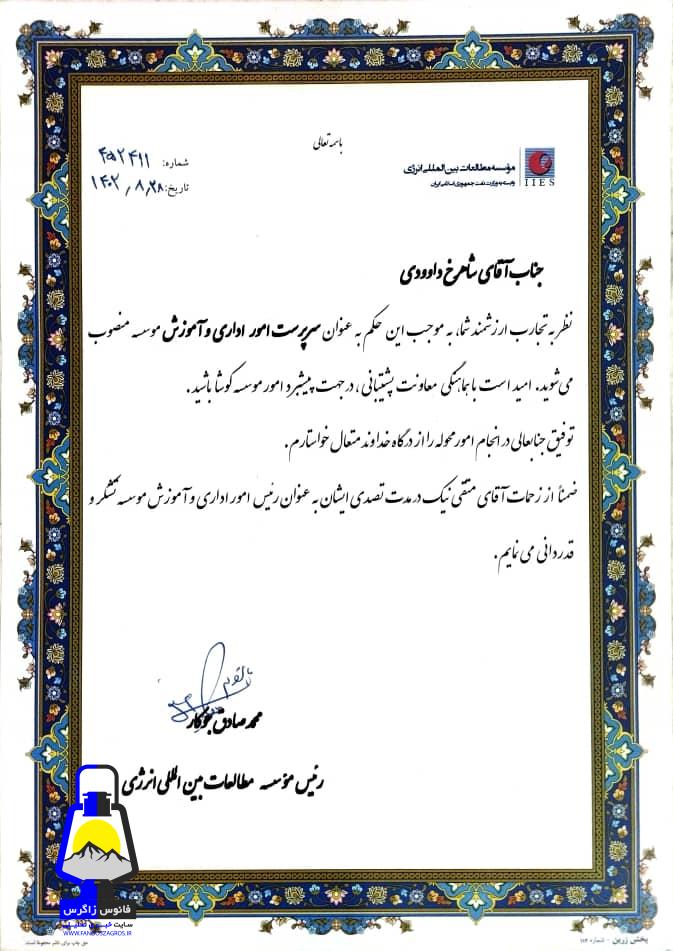 باسمه تعالی
مؤسسه مطالعات بین المللی انرژی
وابسته به وزارت نفت جمهوری اسلامی ایران
IIES
شماره: ۴۵۲۴۱۱
تاریخ: ۱۴۰۲/۸/۲۸
جناب آقای شاهرخ داوودی
نظر به تجارب ارزشمند شما، به موجب این حکم به عنوان سرپرست امور اداری و آموزش موسسه منصوب
می شوید. امید است با هماهنگی معاونت پشتیبانی، در جهت پیشبرد امور موسسه کوشا باشید.
توفیق جنابعالی در انجام امور محوله را از درگاه خداوند متعال خواستارم.
ضمناً از زحمات آقای متقی نیک در مدت تصدی ایشان به عنوان رئیس امور اداری و آموزش موسسه تشکر و
قدردانی می نمایم.
محمد صادق جوکار
رئیس مؤسسه مطالعات بین المللی انرژی
فانوس زاگرس
سایت خبری تحلیلی
WWW.FANOOSZAGROS.IR
حق چاپ برای ناشر محفوظ است.
پخش زرین - شماره ۱۱۲